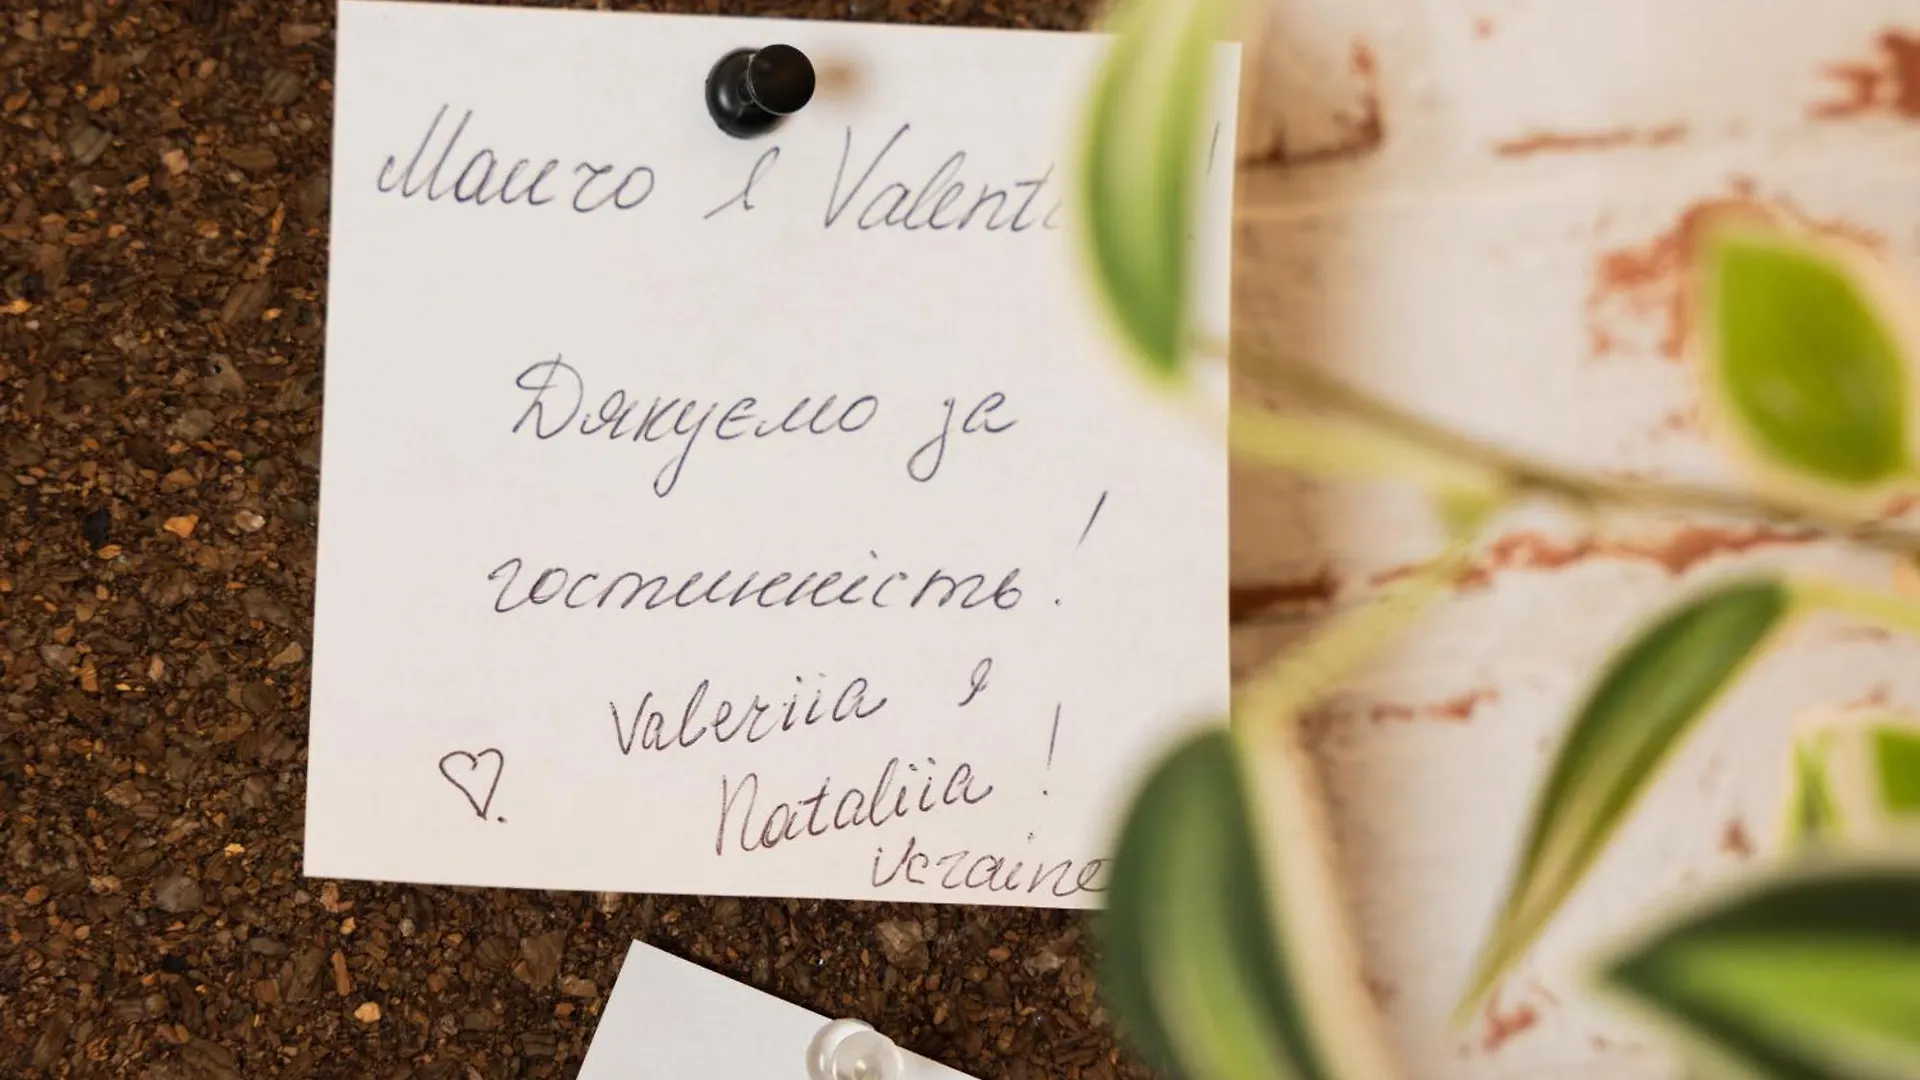 Mauro & Valent
Дякуємо за
гостинність!
Valeriia &
Nataliia!
Ucraine